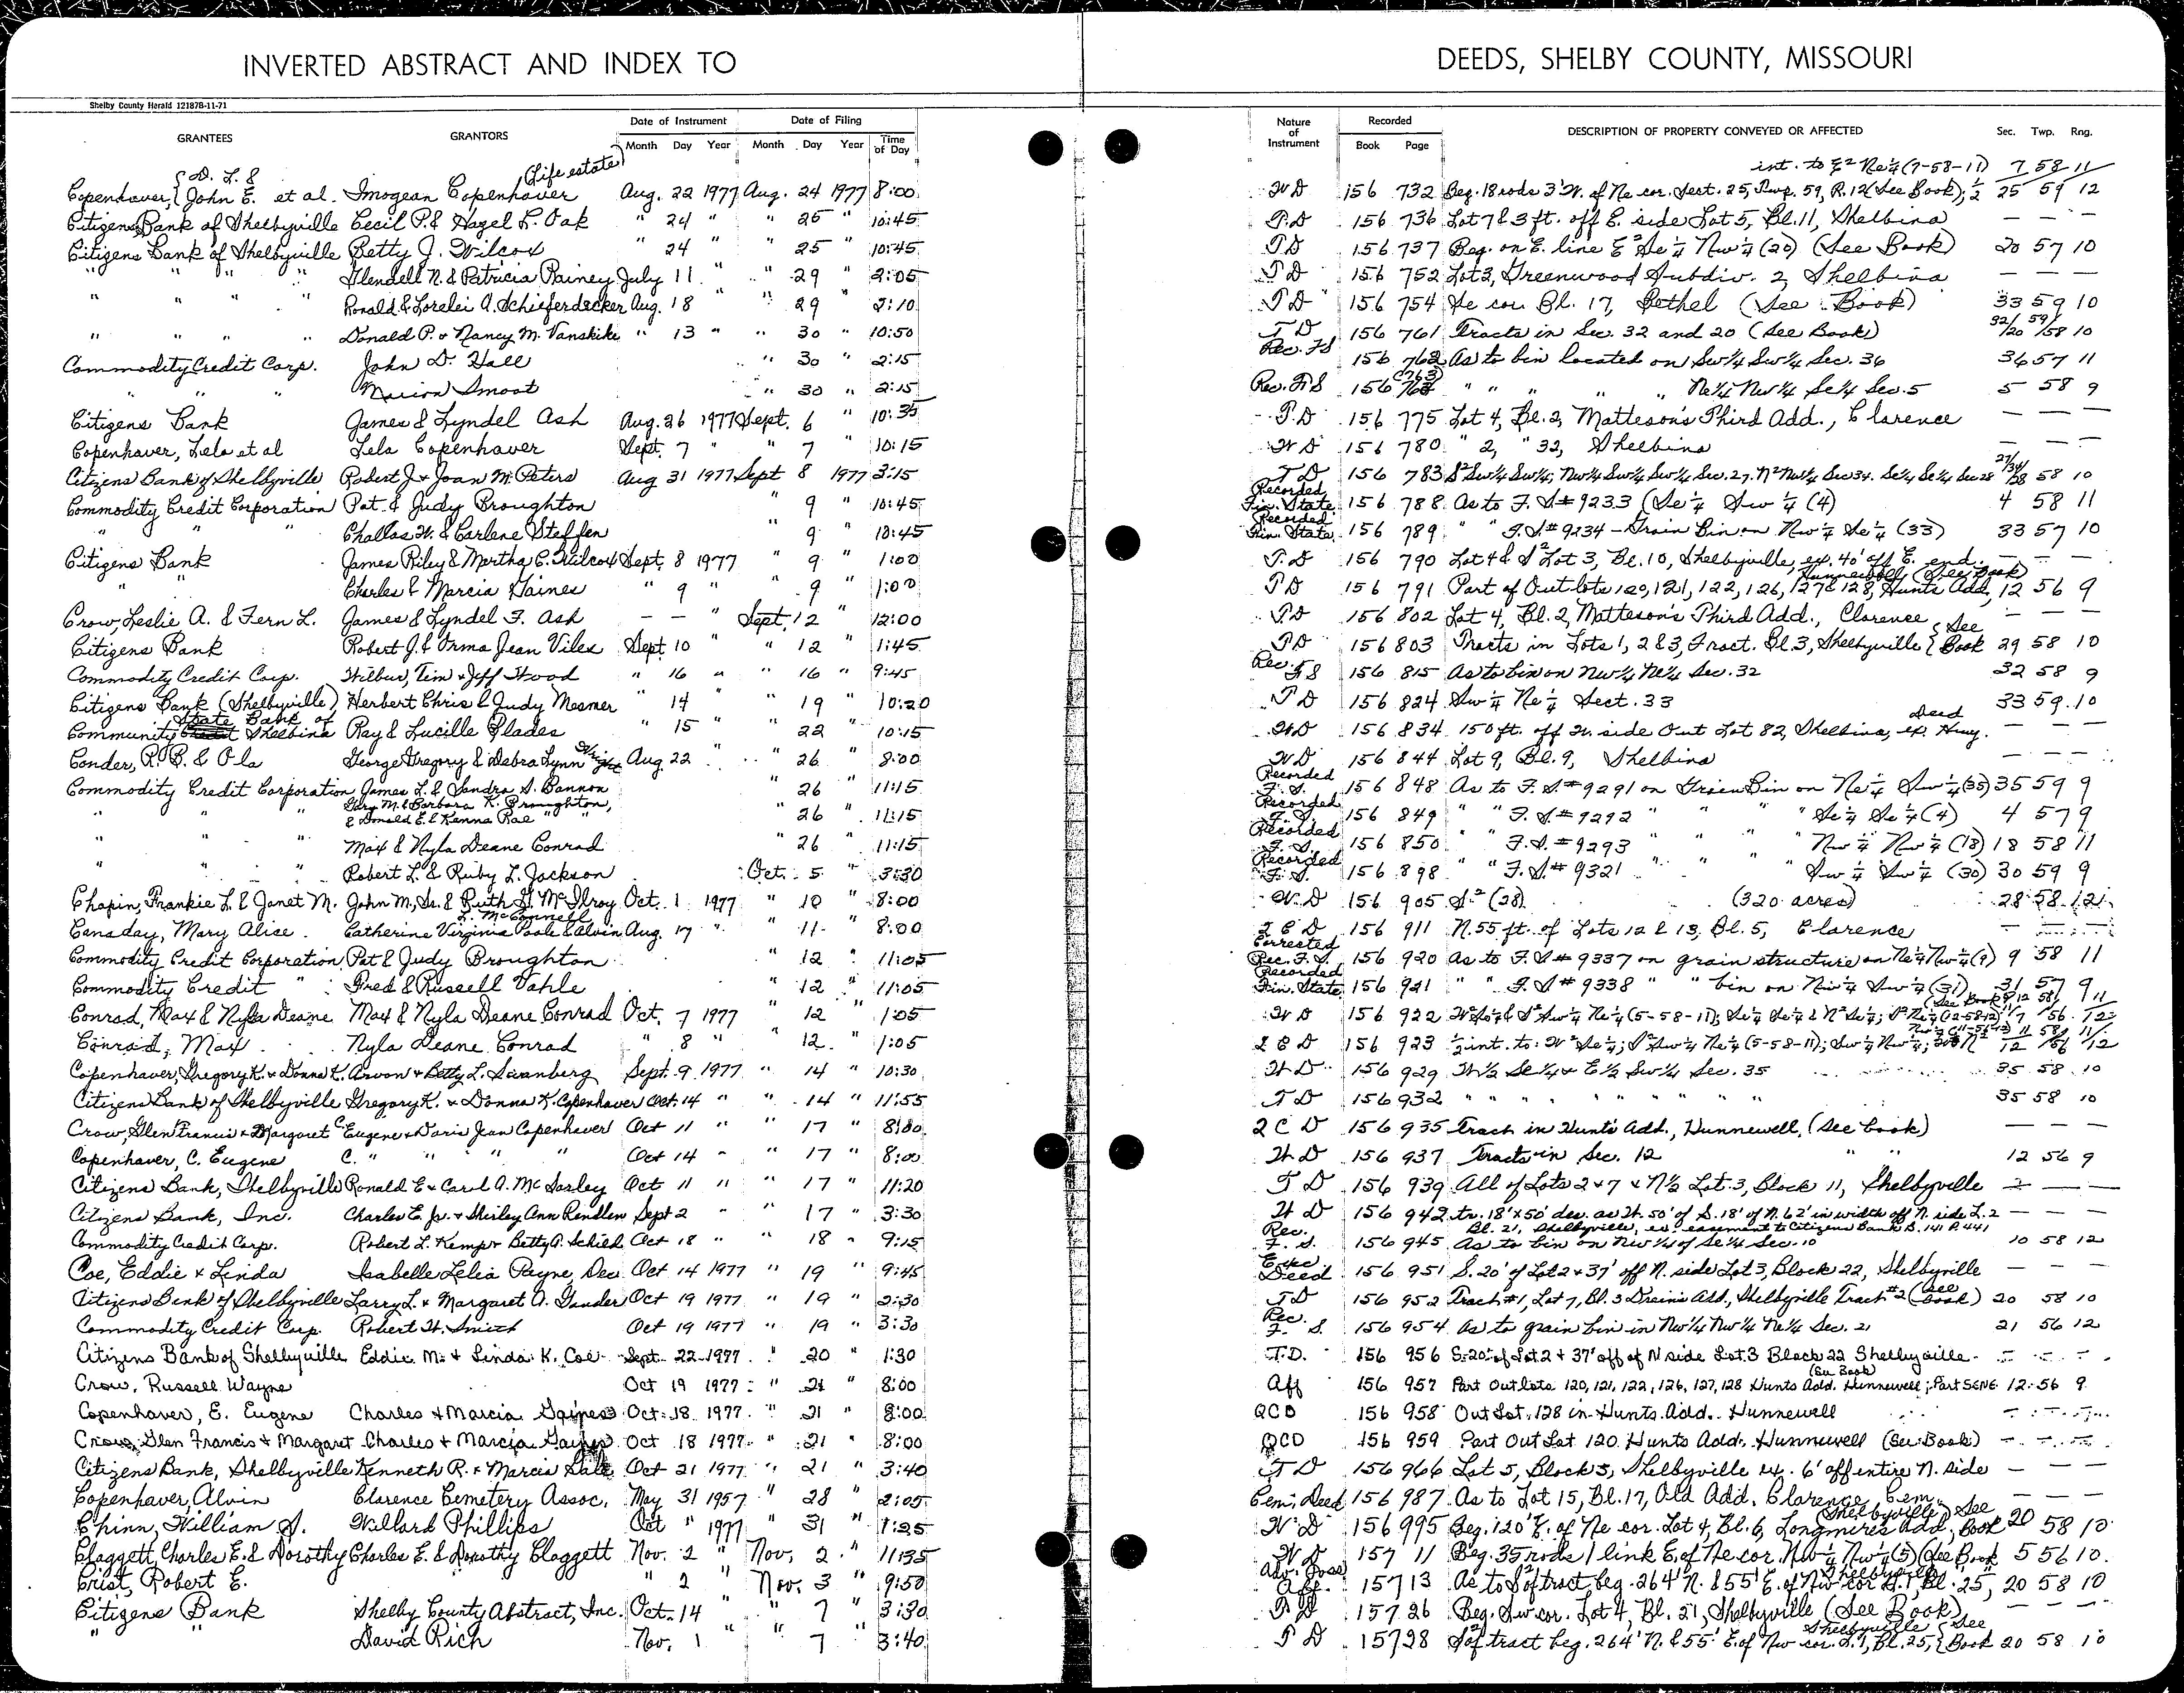 INVERTED ABSTRACT AND INDEX TO DEEDS, SHELBY COUNTY, MISSOURI
Shelby County Herald 12187B-11-71
GRANTEES GRANTORS Date of Instrument Month Day Year Date of Filing Month Day Year Time of Day Nature of Instrument Recorded Book Page DESCRIPTION OF PROPERTY CONVEYED OR AFFECTED Sec. Twp. Rng.
{ D. L. & (Life estate) int. to E² Ne¼ (7-58-11) 7 58 11
Copenhaver, { John E. et al. Imogean Copenhaver Aug. 22 1977 Aug. 24 1977 8:00 W D 156 732 Beg. 18 rods 3' W. of Ne cor. Sect. 25, Twp. 59, R. 12 (See Book); ½ 25 59 12
Citizens Bank of Shelbyville Cecil P. & Hazel L. Oak " 24 " " 25 " 10:45 T. D 156 736 Lot 7 & 3 ft. off E. side Lot 5, Bl. 11, Shelbina — — —
Citizens Bank of Shelbyville Betty J. Wilcox " 24 " 25 " 10:45 T D 156 737 Beg. on E. line E² Se ¼ Nw ¼ (20) (See Book) 20 57 10
" " " " Glendell N. & Patricia Rainey July 11 " " 29 " 2:05 T D 156 752 Lot 3, Greenwood Subdiv. 2, Shelbina — — —
" " " " Ronald & Lorelei A. Schieferdecker Aug. 18 " 29 " 2:10 T D 156 754 Se cor. Bl. 17, Bethel (See Book) 33 59 10
" " " " Donald P. + Nancy M. Vanskike " 13 " " 30 " 10:50 T D 156 761 Tracts in Sec. 32 and 20 (See Book) 32/20 59/58 10
Commodity Credit Corp. John D. Hall " 30 " 2:15 Rec. FS 156 762 As to bin located on Sw¼ Sw¼ Sec. 36 36 57 11
" " " Marion Smoot " 30 " 2:15 Rec. F S 156 (763) " " " " Ne¼ Nw¼ Se¼ Sec. 5 5 58 9
Citizens Bank James & Lyndel Ash Aug. 26 1977 Sept. 6 " 10:35 T. D 156 775 Lot 4, Bl. 2, Matteson's Third Add., Clarence — — —
Copenhaver, Lela et al Lela Copenhaver Sept. 7 " " 7 " 10:15 W D 156 780 " 2, " 32, Shelbina — — —
Citizens Bank of Shelbyville Robert J. + Joan M. Peters Aug 31 1977 Sept 8 1977 3:15 T D 156 783 S² Sw¼ Sw¼; Nw¼ Sw¼ Sw¼ Sec. 27. N² Nw¼ Sec 34. Se¼ Se¼ Sec 28 27/34/28 58 10
Commodity Credit Corporation Pat & Judy Broughton " 9 " 10:45 Recorded Fin. State. 156 788 As to F. S # 9233 (Se ¼ Sw ¼ (4) 4 58 11
" " " Challas W. & Carlene Steffen " 9 " 10:45 Recorded Fin. State. 156 789 " " F. S # 9234 – Grain Bin on Nw ¼ Se ¼ (33) 33 57 10
Citizens Bank James Riley & Mertha C. Wilcox Sept. 8 1977 " 9 " 1:00 T. D 156 790 Lot 4 & S² Lot 3, Bl. 10, Shelbyville, ex. 40' off E. end — — —
" " Charles & Marcia Gaines " 9 " 9 " 1:00 T D 156 791 Part of Outlots 120, 121, 122, 126, 127 & 128, Hunts Add, Hunnewell (See Book) 12 56 9
Crow, Leslie A. & Fern L. James & Lyndel F. Ash — — " Sept. 12 " 12:00 T. D 156 802 Lot 4, Bl. 2, Matteson's Third Add., Clarence — — —
Citizens Bank Robert J. & Orma Jean Viles Sept. 10 " " 12 " 1:45 T D 156 803 Tracts in Lots 1, 2 & 3, Fract. Bl. 3, Shelbyville { See Book 29 58 10
Commodity Credit Corp. Wilbur, Tim + Jeff Wood " 16 " " 16 " 9:45 Rec. F S 156 815 As to bin on Nw¼ Ne¼ Sec. 32 32 58 9
Citizens Bank (Shelbyville) Herbert Chris & Judy Mesmer " 14 " 19 " 10:20 T D 156 824 Sw ¼ Ne ¼ Sect. 33 33 59 10
Community State Bank of Shelbina Ray & Lucille Glades " 15 " 22 " 10:15 W D 156 834 150 ft. off W. side Out Lot 82, Shelbina, ex. deed Hwy. — — —
Conder, R. B. & Ola George Gregory & Debra Lynn Wright Aug. 22 " " 26 " 8:00 W D 156 844 Lot 9, Bl. 9, Shelbina — — —
Commodity Credit Corporation James L. & Sandra S. Bannon " 26 " 11:15 Recorded F. S. 156 848 As to F. S. # 9291 on Grain Bin on Ne ¼ Sw ¼ (35) 35 59 9
" " " Gary M. & Barbara K. Broughton, & Donald E. & Kenna Rae " " 26 " 11:15 Recorded F. S. 156 849 " " F. S. # 9292 " " " Se ¼ Se ¼ (4) 4 57 9
" " " Max & Nyla Deane Conrad " 26 " 11:15 Recorded F. S. 156 850 " " F. S. # 9293 " " " Nw ¼ Nw ¼ (18) 18 58 11
" " " Robert L. & Ruby L. Jackson Oct. 5 " 3:30 Recorded F. S. 156 898 " " F. S. # 9321 " " " Sw ¼ Sw ¼ (30) 30 59 9
Chapin, Frankie L. & Janet M. John M., Sr. & Ruth G. McIlroy Oct. 1 1977 " 10 " 8:00 W. D 156 905 S² (28) (320 acres) 28 58 12
Canaday, Mary Alice Catherine Virginia Poole & Alvin L. McConnell Aug. 17 " " 11 8:00 2 C D 156 911 N. 55 ft. of Lots 12 & 13, Bl. 5, Clarence — — —
Commodity Credit Corporation Pat & Judy Broughton " 12 " 11:05 Corrected Rec. F. S. 156 920 As to F. S # 9337 on grain structure on Ne ¼ Nw ¼ (9) 9 58 11
Commodity Credit " Fred & Russell Vahle " 12 " 11:05 Recorded Fin. State. 156 921 " " F. S # 9338 " " bin on Nw ¼ Sw ¼ (31) 31 57 9
Conrad, Max & Nyla Deane Max & Nyla Deane Conrad Oct. 7 1977 " 12 1:05 W D 156 922 (See Book)
Conrad, Max Nyla Deane Conrad " 8 " 12 " 1:05 2 C D 156 923 ½ int. to: W² Se ¼; S² Sw ¼ Ne ¼ (5-58-11); Sw ¼ Nw ¼;
Copenhaver, Gregory K. + Donna K. Arvon + Betty L. Swanberg Sept. 9 1977 " 14 " 10:30 W D 156 929 W½ Se¼ + E½ Sw¼ Sec. 35 35 58 10
Citizens Bank of Shelbyville Gregory K. + Donna K. Copenhaver Oct. 14 " " 14 " 11:55 T D 156 932 " " " " " " " 35 58 10
Crow, Glen Francis + Margaret C. Eugene + Doris Jean Copenhaver Oct 11 " " 17 " 8:00 2 C D 156 935 Track in Hunt's Add., Hunnewell, (See book) — — —
Copenhaver, C. Eugene C. " " " " Oct 14 " " 17 " 8:00 W D 156 937 Tracts in Sec. 12 " " 12 56 9
Citizens Bank, Shelbyville Ronald E + Carol A. McSorley Oct 11 " " 17 " 11:20 T D 156 939 All of Lots 2 + 7 + N½ Lot 3, Block 11, Shelbyville — — —
Citizens Bank, Inc. Charles E. Jr. + Shirley Ann Rendlen Sept 2 " " 17 " 3:30 W D 156 942 tr. 18' x 50' des. as W. 50' of S. 18' of N. 62' in width off N. side L. 2 — — —
Bl. 21, Shelbyville, ex. easement to Citizens Bank B. 141 P. 441
Commodity Credit Corp. Robert L. Kemp + Betty A. Schild Oct 18 " " 18 " 9:15 Rec. F. S. 156 945 As to bin on Nw ¼ of Se ¼ Sec. 10 10 58 12
Coe, Eddie + Linda Isabelle Lelia Payne, Dec. Oct 14 1977 " 19 " 9:45 Exec Deed 156 951 S. 20' of Lot 2 + 37' off N. side Lot 3, Block 22, Shelbyville — — —
Citizens Bank of Shelbyville Larry L. + Margaret A. Gander Oct 19 1977 " 19 " 2:30 T D 156 952 Track #1, Lot 7, Bl. 3 Drain's Add., Shelbyville Track #2 (See book) 20 58 10
Commodity Credit Corp. Robert W. Smith Oct 19 1977 " 19 " 3:30 Rec. F. S. 156 954 As to grain bin in Nw¼ Nw¼ Ne¼ Sec. 21 21 56 12
Citizens Bank of Shelbyville Eddie M. + Linda K. Coe Sept. 22 1977 " 20 " 1:30 T.D. 156 956 S-20' of Lot 2 + 37' off of N side Lot 3 Block 22 Shelbyville — — —
Crow, Russell Wayne Oct 19 1977 " 21 " 8:00 Aff 156 957 Part Outlots 120, 121, 122, 126, 127, 128 Hunts Add. Hunnewell (See Book); Part SENE 12 56 9
Copenhaver, E. Eugene Charles + Marcia Gaines Oct 18 1977 " 21 " 8:00 QCD 156 958 Out Lot 128 in Hunts Add. Hunnewell — — —
Crow, Glen Francis + Margaret Charles + Marcia Gaines Oct 18 1977 " 21 " 8:00 QCD 156 959 Part Out Lot 120 Hunts Add. Hunnewell (See Book) — — —
Citizens Bank, Shelbyville Kenneth R. + Marcia Oct 21 1977 " 21 " 3:40 T D 156 966 Lot 5, Block 5, Shelbyville ex. 6' off entire N. side — — —
Copenhaver, Alvin Clarence Cemetery Assoc. May 31 1957 " 28 " 2:05 Cem. Deed 156 987 As to Lot 15, Bl. 17, Old Add. Clarence Cem. — — —
Chinn, William S. Willard Phillips Oct " 1977 " 31 " 1:25 W. D 156 995 Beg. 120' E. of Ne cor. Lot 4, Bl. 6, Longmires Add. Shelbyville { See Book 20 58 10
Claggett, Charles E. & Dorothy Charles E. & Dorothy Claggett Nov. 2 " Nov. 2 " 11:35 W D 157 11 Beg. 35 rods 1 link E. of Ne cor. Nw ¼ Nw ¼ (5) (See Book 5 56 10
Crist, Robert E. " 2 " Nov. 3 " 9:50 Adv. Poss. Aff. 157 13 As to S² of tract beg. 264' N. & 55' E. of Nw cor. L. 1, Bl. 25, Shelbyville 20 58 10
Citizens Bank Shelby County Abstract, Inc. Oct. 14 " " 7 " 3:30 T D 157 26 Beg. Sw cor. Lot 4, Bl. 21, Shelbyville (See Book) — — —
" " David Rich Nov. 1 " " 7 " 3:40 T D 157 28 S² of tract beg. 264' N. & 55' E. of Nw cor. L. 1, Bl. 25, Shelbyville { See Book 20 58 10